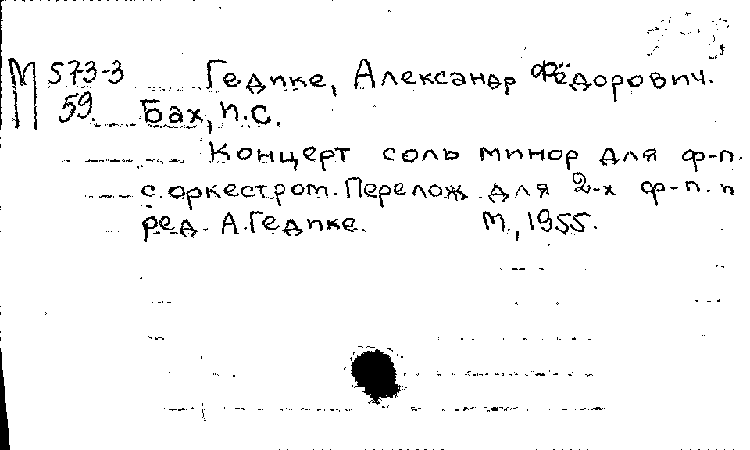 М 573-3 Гедике, Александр Фёдорович.
59 Бах, И.С.
Концерт соль минор для ф-п.
с оркестром. Перелож. для 2-х ф-п. и
ред. А. Гедике. М., 1955.